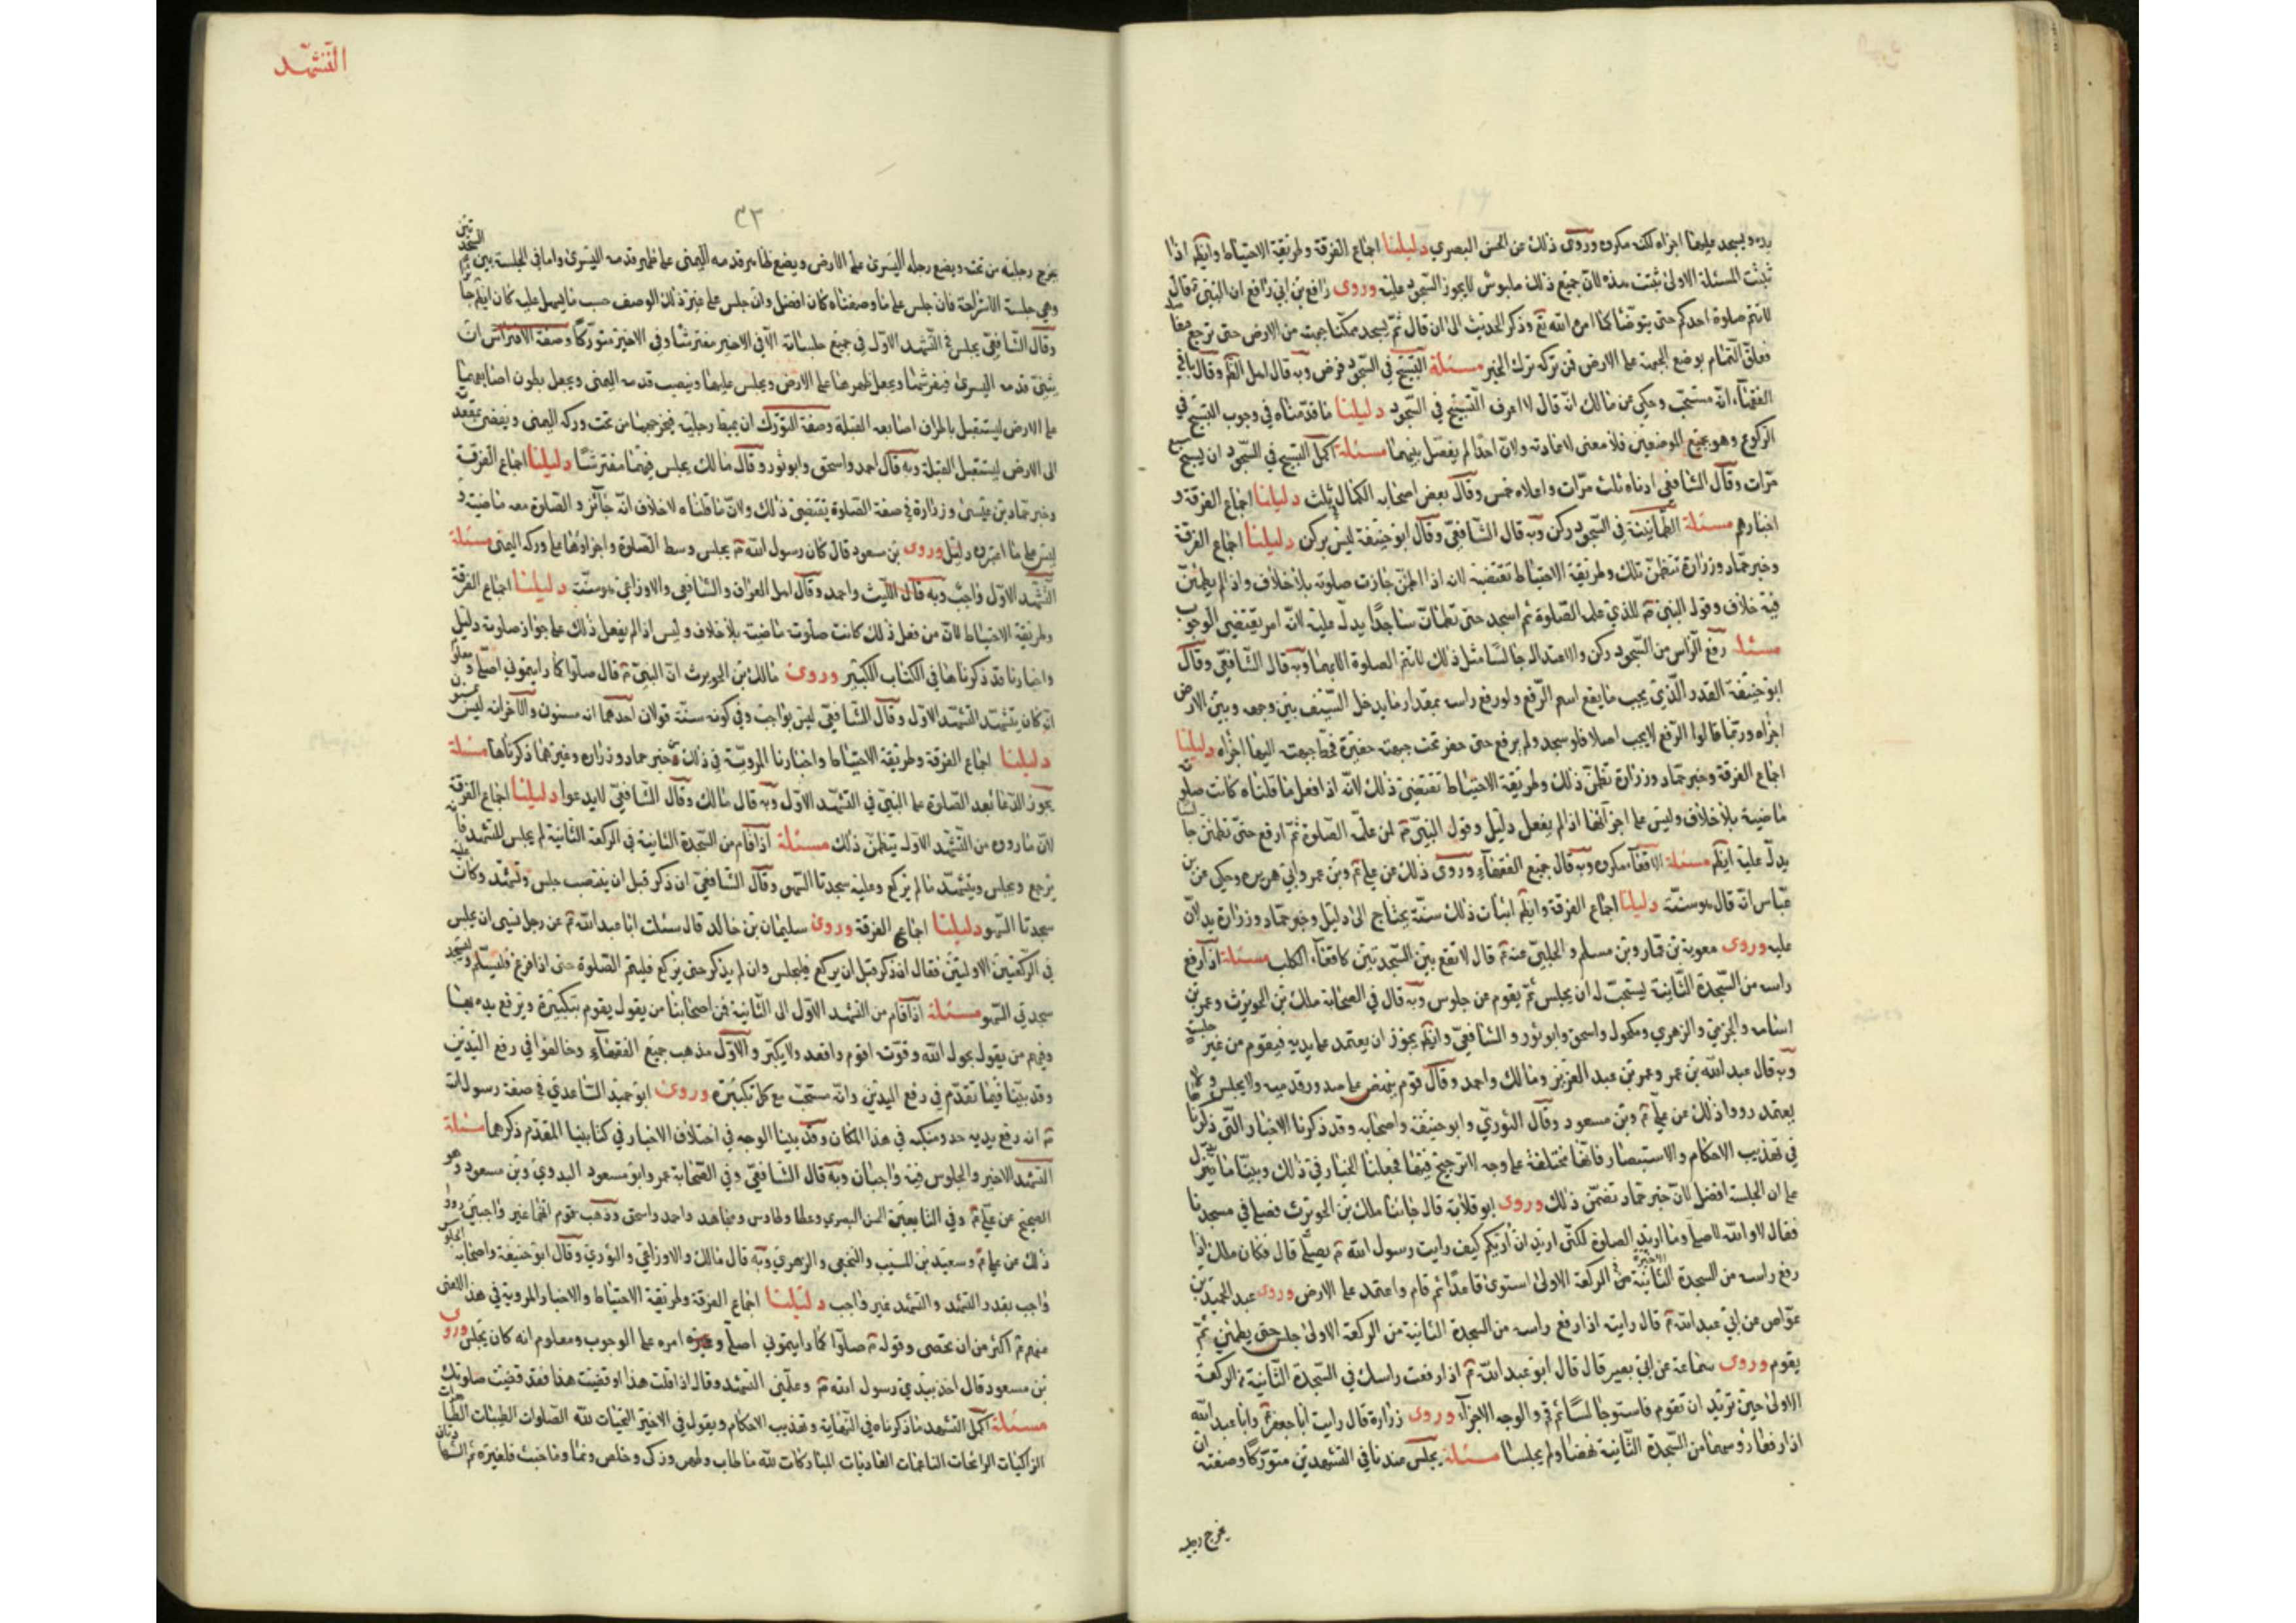 يده ويسجد عليها اجزاه لكنه مكروه وروى ذلك عن الحسن البصري دليلنا اجماع الفرقة وطريقة الاحتياط وايضا اذا
ثبتت المسئلة الاولى ثبتت هذه لان جميع ذلك ملبوس لايجوز السجود عليه وروى رافع بن ابي رافع ان النبي قال
لاتتم صلوة احدكم حتى يتوضأ كما امره الله تع وذكر الحديث الى ان قال ثم يسجد ممكنا جبهته من الارض حتى ترجع مفاصله
فعلق التمام بوضع الجبهة على الارض فمن تركه ترك الخبر مسئلة التسبيح في السجود فرض وبه قال اهل الظاهر وقال باقي
الفقهاء انه مستحب وحكي عن مالك انه قال لا اعرف التسبيح في السجود دليلنا ما قدمناه في وجوب التسبيح في
الركوع وهو يجمع الموضعين فلا معنى لاعادته ولان احدا لم يفصل بينهما مسئلة اكمل التسبيح في السجود ان يسبح سبع
مرات وقال الشافعي ادناه ثلث مرات واعلاه خمس وقال بعض اصحابه الكمال في ثلث دليلنا اجماع الفرقة و
اخبارهم مسئلة الطمأنينة في السجود ركن وبه قال الشافعي وقال ابو حنيفة ليس بركن دليلنا اجماع الفرقة
وخبر حماد وزرارة تتضمن تلك وطريقة الاحتياط تقتضيه لانه اذا اطمئن جازت صلوته بلا خلاف واذا لم يطمئن
فيه خلاف وقول النبي للذي علمه الصلوة ثم اسجد حتى تطمان ساجدا يدل عليه لانه امر يقتضي الوجوب
مسئلة رفع الراس من السجود ركن والاعتدال جالسا مثل ذلك لاتتم الصلوة الا بهما وبه قال الشافعي وقال
ابو حنيفة القدر الذي يجب ما يقع اسم الرفع ولو رفع راسه بمقدار ما يدخل السيف بين وجهه وبين الارض
اجزاه وربما قالوا الرفع لايجب اصلا فلو سجد ولم يرفع حتى حفر تحت جبهته حفيرة فحط جبهته اليها اجزاه دليلنا
اجماع الفرقة وخبر حماد وزرارة تظمن ذلك وطريقة الاحتياط تقتضي ذلك لانه اذا فعل ما قلناه كانت صلوته
ماضية بلا خلاف وليس على اجزائها اذا لم يفعل دليل وقول النبي لمن علمه الصلوة ثم ارفع حتى تطمئن جالسا
يدل عليه ايضا مسئلة الاقعاء مكروه وبه قال جميع الفقهاء وروى ذلك عن علي وبن عمر وابي هريره وحكي عن بن
عباس انه قال هو سنة دليلنا اجماع الفرقة وايضا اثبات ذلك سنة يحتاج الى دليل وخبر حماد وزرارة يدلان
عليه وروى معوية بن عمار وبن مسلم والحلبي عنه قال لاتقع بين السجدتين كاقعاء الكلب مسئلة اذا رفع
راسه من السجدة الثانية يستحب له ان يجلس ثم يقوم عن جلوس وبه قال في الصحابة ملك بن الحويرث وعمر بن
وبه قال عبد الله بن عمر وعمر بن عبد العزيز ومالك واحمد وقال قوم ينهض على صدور قدميه ولا يجلس ولا
يعتمد رووا ذلك عن علي وبن مسعود وقال الثوري وابو حنيفة واصحابه وقد ذكرنا الاخبار التي ذكرناها
في تهذيب الاحكام والاستبصار فانها مختلفة على وجه لاترجيح فيها فجعلنا الخيار في ذلك وبينا ما يدل
على ان الجلسة افضل لان خبر حماد تضمن ذلك وروى ابو قلابة قال جاءنا ملك بن الحويرث فصلى في مسجدنا
فقال لا والله لاصلي وما اريد الصلوة لكني اريد ان اريكم كيف رايت رسول الله يصلي قال فكان ملك اذا
رفع راسه من السجدة الاخيرة من الركعة الاولى استوى قاعدا ثم قام واعتمد على الارض وروى عبد الحميد بن
عواض عن ابي عبد الله قال رايته اذا رفع راسه من السجدة الثانية من الركعة الاولى جلس حتى يطمئن ثم
يقوم وروى سماعة عن ابي بصير قال قال ابو عبد الله اذا رفعت راسك في السجدة الثانية من الركعة
الاولى حين تريد ان تقوم فاستو جالسا ثم قم والوجه الاخر وروى زرارة قال رايت ابا جعفر وابا عبد الله
اذا رفعا رؤسهما من السجدة الثانية نهضا ولم يجلسا مسئلة يجلس عندنا في التشهدين متوركا وصفته ان
يخرج رجليه
التشهد
٣٢
يخرج رجليه من تحته ويضع رجله اليسرى على الارض ويضع ظاهر قدمه اليمنى على ظهر قدمه اليسرى واما في الجلسة بين السجدتين
وهي جلسة الاستراحة فان جلس على ما وصفناه كان افضل وان جلس على غير ذلك الوصف حسب ما يسهل عليه كان ايضا جائزا
وقال الشافعي يجلس في التشهد الاول في جميع جلساته الا في الاخير مفترشا وفي الاخير متوركا وصفة الافتراش ان
يثني قدمه اليسرى فيفرشها ويجعل ظهرها على الارض ويجلس عليها وينصب قدمه اليمنى ويجعل بطون اصابعها
على الارض ليستقبل باطراف اصابعه القبلة وصفة التورك ان يميط رجليه فيخرجهما من تحت وركه اليمنى ويفضي بمقعدته
الى الارض ليستقبل القبلة وبه قال احمد واسحق وابو ثور وقال مالك يجلس فيهما مفترشا دليلنا اجماع الفرقة
وخبر حماد بن عيسى وزرارة في صفة الصلوة يقتضي ذلك ولان ما قلناه لاخلاف انه جائز والصلوة معه ماضية و
ليس على ما اعتبروه دليل وروى بن مسعود قال كان رسول الله يجلس وسط الصلوة واخرها على وركه اليمنى مسئلة
التشهد الاول واجب وبه قال الليث واحمد وقال اهل العراق والشافعي والاوزاعي هو سنة دليلنا اجماع الفرقة
وطريقة الاحتياط لان من فعل ذلك كانت صلوته ماضية بلا خلاف وليس اذا لم يفعل ذلك على جواز صلوته دليل
واخبارنا قد ذكرناها في الكتاب الكبير وروى مالك بن الحويرث ان النبي قال صلوا كما رايتموني اصلي ومعلوم
انه كان يتشهد التشهد الاول وقال الشافعي ليس بواجب وفي كونه سنة قولان احدهما انه مسنون والاخر انه ليس بمسنون
دليلنا اجماع الفرقة وطريقة الاحتياط واخبارنا المروية في ذلك خبر حماد وزراره وغيرهما ذكرناها مسئلة
يجوز الدعاء بعد الصلوة على النبي في التشهد الاول وبه قال مالك وقال الشافعي لايدعوا دليلنا اجماع الفرقة
لان ما رووه من التشهد الاول يتظمن ذلك مسئلة اذا قام من السجدة الثانية في الركعة الثانية لم يجلس للتشهد فانه
يرجع ويجلس ويتشهد ما لم يركع وعليه سجدتا السهو وقال الشافعي ان ذكر قبل ان ينتصب جلس وتشهد وكان عليه
سجدتا السهو دليلنا اجماع الفرقة وروى سليمان بن خالد قال سئلت ابا عبد الله عن رجل نسي ان يجلس
في الركعتين الاوليتين فقال ان ذكر قبل ان يركع فليجلس وان لم يذكر حتى يركع فليتم الصلوة حتى اذا فرغ فليسلم وليسجد
سجدتي السهو مسئلة اذا قام من التشهد الاول الى الثانية فمن اصحابنا من يقول يقوم بتكبيرة ويرفع يديه بها
وفيهم من يقول بحول الله وقوته اقوم واقعد ولا يكبر والاول مذهب جميع الفقهاء وخالفوا في رفع اليدين
وقد بينا فيما تقدم في رفع اليدين وانه مستحب مع كل تكبيرة وروى ابو حميد الساعدي في صفة رسول الله
انه رفع يديه حذو منكبيه في هذا المكان وقد بينا الوجه في اختلاف الاخبار في كتابينا المقدم ذكرهما مسئلة
التشهد الاخير والجلوس فيه واجبان وبه قال الشافعي وفي الصحابة عمر وابو مسعود البدري وبن مسعود وهو
الصحيح عن علي وفي التابعين الحسن البصري وعطا وطاوس ومجاهد واحمد واسحق وذهب قوم انهما غير واجبين رووا
ذلك عن علي وسعيد بن المسيب والنخعي والزهري وبه قال مالك والاوزاعي والثوري وقال ابو حنيفة واصحابه الجلوس
واجب بقدر التشهد والتشهد غير واجب دليلنا اجماع الفرقة وطريقة الاحتياط والاخبار المروية في هذا المعنى
منهم اكثر من ان تحصى وقوله صلوا كما رايتموني اصلي امره على الوجوب ومعلوم انه كان يجلس وروى
بن مسعود قال اخذ بيدي رسول الله وعلمني التشهد وقال اذا قلت هذا او قضيت هذا فقد قضيت صلوتك
مسئلة اكمل التشهد ما ذكرناه في النهاية وتهذيب الاحكام ويقول في الاخير التحيات لله الصلوات الطيبات الطاهرات
الزاكيات الرائحات الناعمات الغاديات المباركات لله ما طاب وطهر وزكى وخلص ونما وما خبث فلغيره ثم الشهادتان